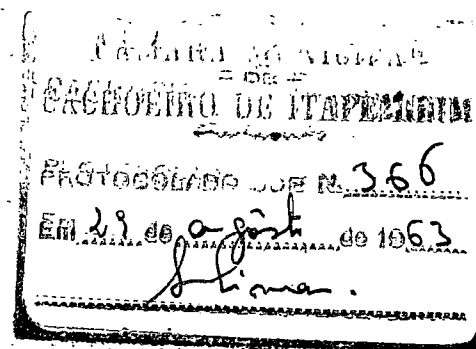 CAMARA MUNICIPAL
= DE =
CACHOEIRO DE ITAPEMIRIM
PROTOCOLADO SOB N. 366
EM 29 de agôsto de 1963